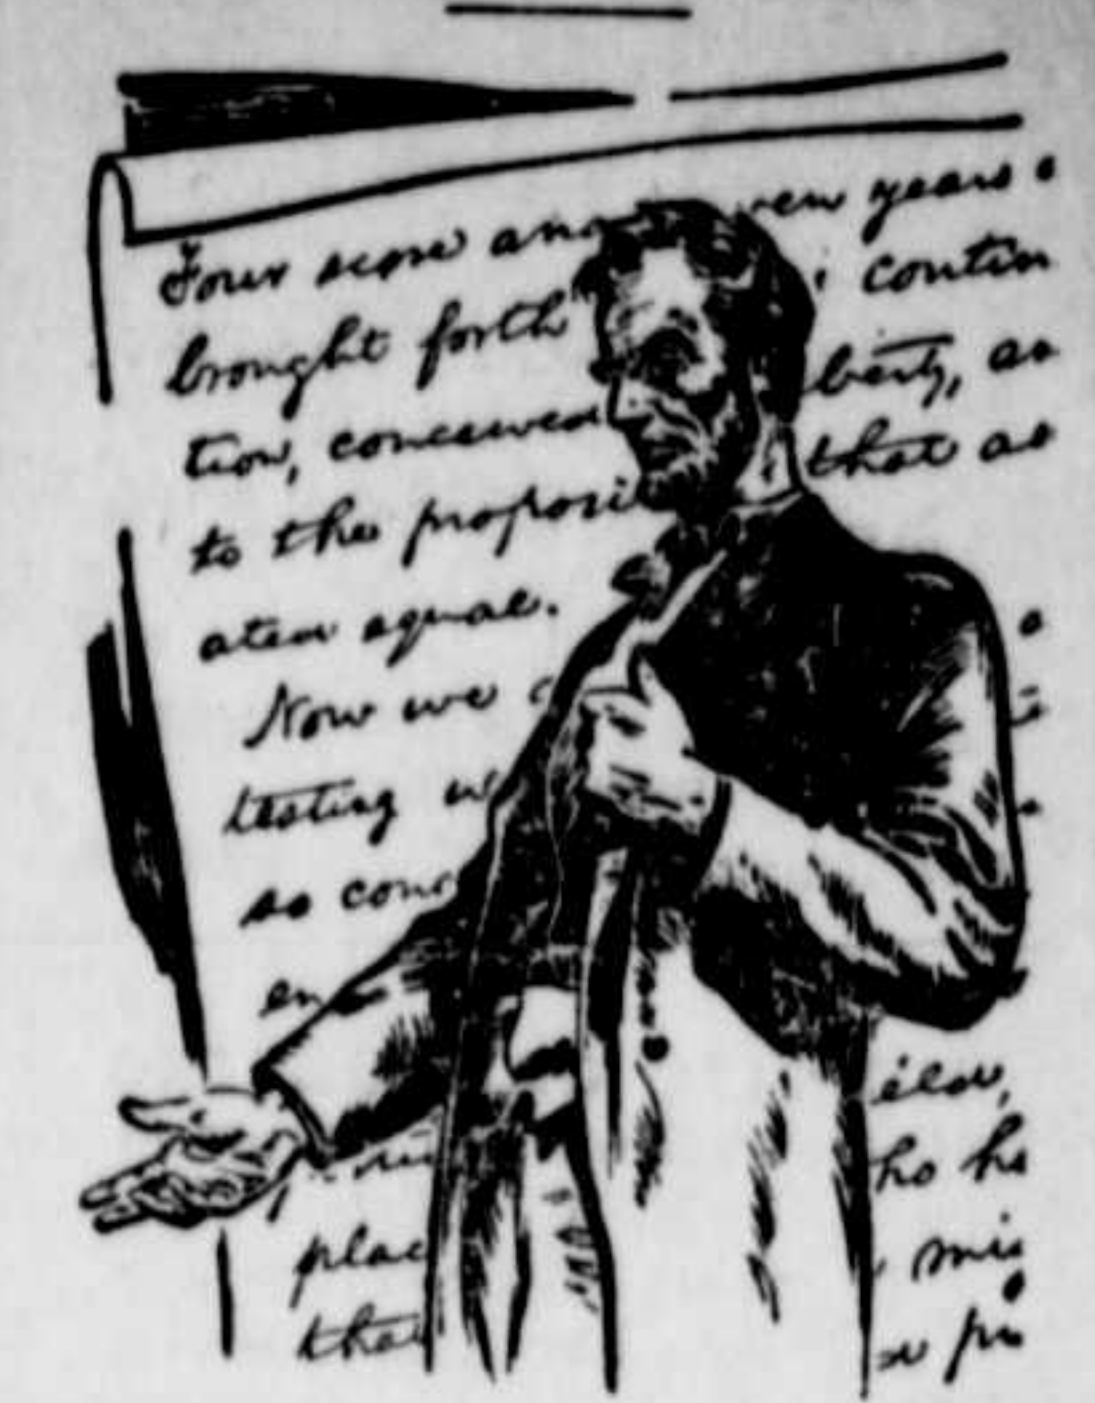 Four score and ven years a
brought forth contin
tion, conceived berty, an
to the proposi that al
ated equal.
Now we
testing w
so conc
en
eld,
ho he
plac
tha